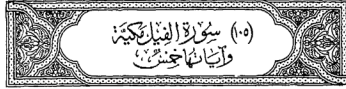 (١٠٥) سُورَةُ الْفِيلِ مَكِيَّة
وَآيَاتُهَا خَمْسٌ